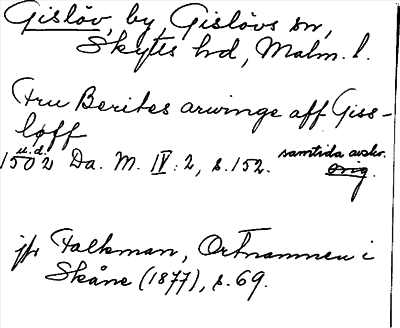 Gislöv, by, Gislövs sn,
Skytts hd, Malm. l.
Fru Berites arwinge aff Giss-
løff
u.d.
1502 Da. M. IV: 2, s. 152. samtida avskr.
Orig.
jfr Falkman, Ortnamnen i
Skåne (1877), s. 69.